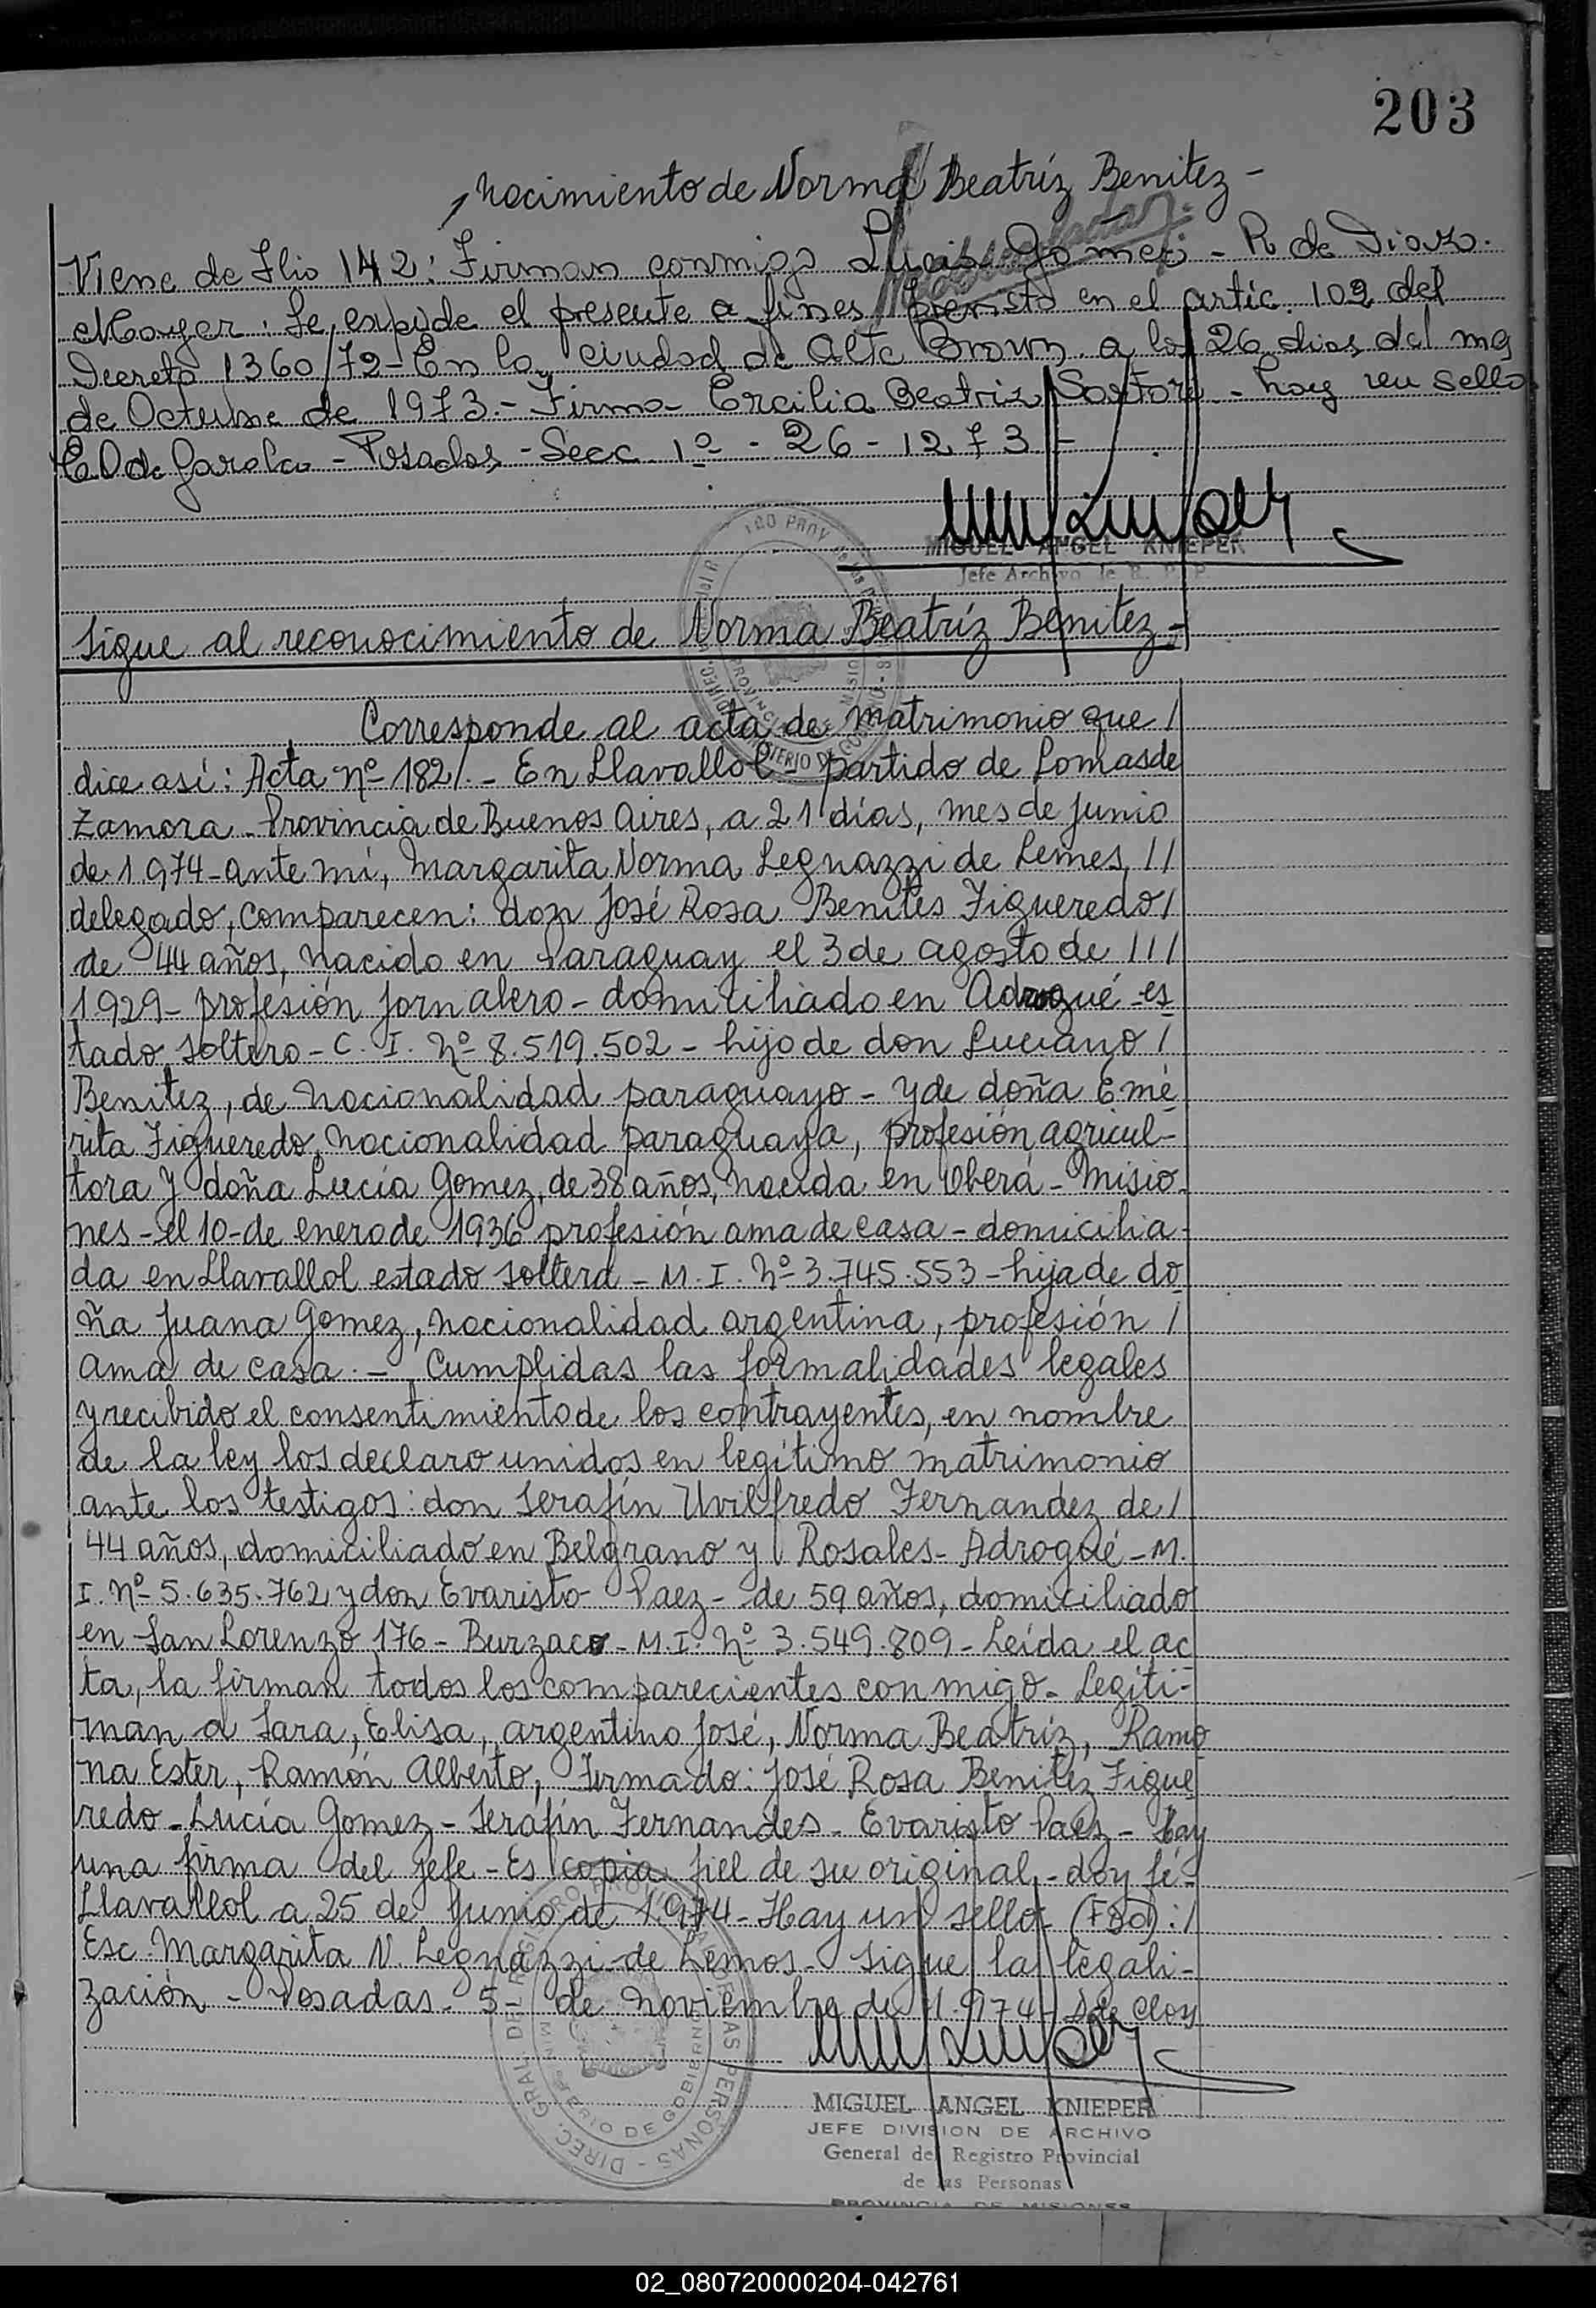 203
Nacimiento de Norma Beatríz Benitez -
Viene de Flio 142: Firman conmigo Lucia Gomez - R de Diaz
Mayer. Se expide el presente a fines previsto en el artic. 102 del
Decreto 1360/72 - En la ciudad de Alte Brown a los 26 dias del mes
de Octubre de 1973.- Firma- Ercilia Beatriz Sartori - hay un sello
- Posadas - Secc 1º - 26-12-73 -
MIGUEL ANGEL KNIEPER
Jefe Archivo de R. P. P.
Sigue al reconocimiento de Norma Beatríz Benitez -
Corresponde al acta de matrimonio que /
dice así: Acta Nº 182/. - En Llavallol - partido de Lomas de
Zamora - Provincia de Buenos Aires, a 21 días, mes de junio
de 1.974 - ante mí, Margarita Norma Legnazzi de Lemes, //
delegado, comparecen: don José Rosa Benites Figueredo /
de 44 años, nacido en Paraguay el 3 de agosto de ///
1929 - profesión jornalero - domiciliado en Adrogué - es
tado soltero - C. I. Nº 8.519.502 - hijo de don Luciano /
Benitez, de nacionalidad paraguayo - y de doña Emé
rita Figueredo, nacionalidad paraguaya, profesión agricul-
tora y doña Lucía Gomez, de 38 años, nacida en Oberá - Misio-
nes - el 10 - de enero de 1936 profesión ama de casa - domicilia-
da en Llavallol estado soltera - M. I. Nº 3.745.553 - hija de do
ña Juana Gomez, nacionalidad argentina, profesión /
ama de casa. - Cumplidas las formalidades legales
y recibido el consentimiento de los contrayentes, en nombre
de la ley los declaro unidos en legítimo matrimonio
ante los testigos: don Serafín Uvilfredo Fernandez de /
44 años, domiciliado en Belgrano y Rosales - Adrogué - M.
I. Nº 5.635.762 y don Evaristo Paez - de 59 años, domiciliado
en San Lorenzo 176 - Burzaco - M. I. Nº 3.549.809 - Leída el ac
ta, la firman todos los comparecientes conmigo - Legiti-
man a Sara, Elisa, argentino José, Norma Beatríz, Ramo
na Ester, Ramón Alberto, Firmado: José Rosa Benitez Figue
redo - Lucía Gomez - Serafín Fernandes - Evaristo Paez - Hay
una firma del jefe - Es copia fiel de su original - doy fé -
Llavallol a 25 de Junio de 1.974 - Hay un sello - (Fdo): /
Esc. Margarita N. Legnazzi de Lemos - Sigue la legali-
zación - Posadas - 5 - de noviembre de 1.974
MIGUEL ANGEL KNIEPER
JEFE DIVISION DE ARCHIVO
General del Registro Provincial
de las Personas
PROVINCIA DE MISIONES
02_080720000204-042761